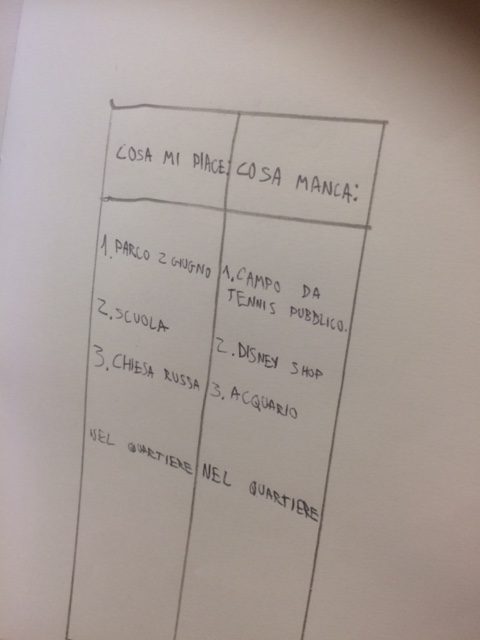 COSA MI PIACE:
COSA MANCA:
1. PARCO 2 GIUGNO
2. SCUOLA
3. CHIESA RUSSA
NEL QUARTIERE
1. CAMPO DA
TENNIS PUBBLICO.
2. DISNEY SHOP
3. ACQUARIO
NEL QUARTIERE